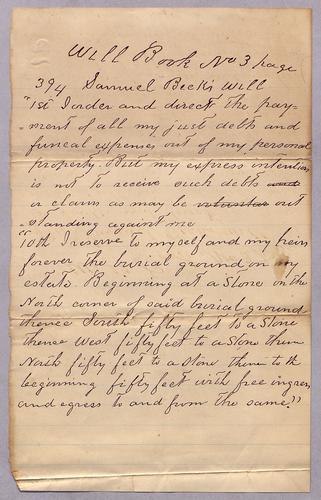 Will Book No 3 page
394 Samuel Beck's Will
"1st I order and direct the pay-
ment of all my just debts and
funeral expenses out of my personal
property. But my express intention
is not to receive such debts
or claims as may be out
standing against me
"10th I reserve to myself and my heirs
forever the burial ground on my
estate. Beginning at a Stone on the
North corner of said burial ground
thence South fifty feet to a Stone
thence West fifty feet to a Stone then
North fifty feet to a Stone then to th
beginning fifty feet with free ingress
and egress to and from the same."